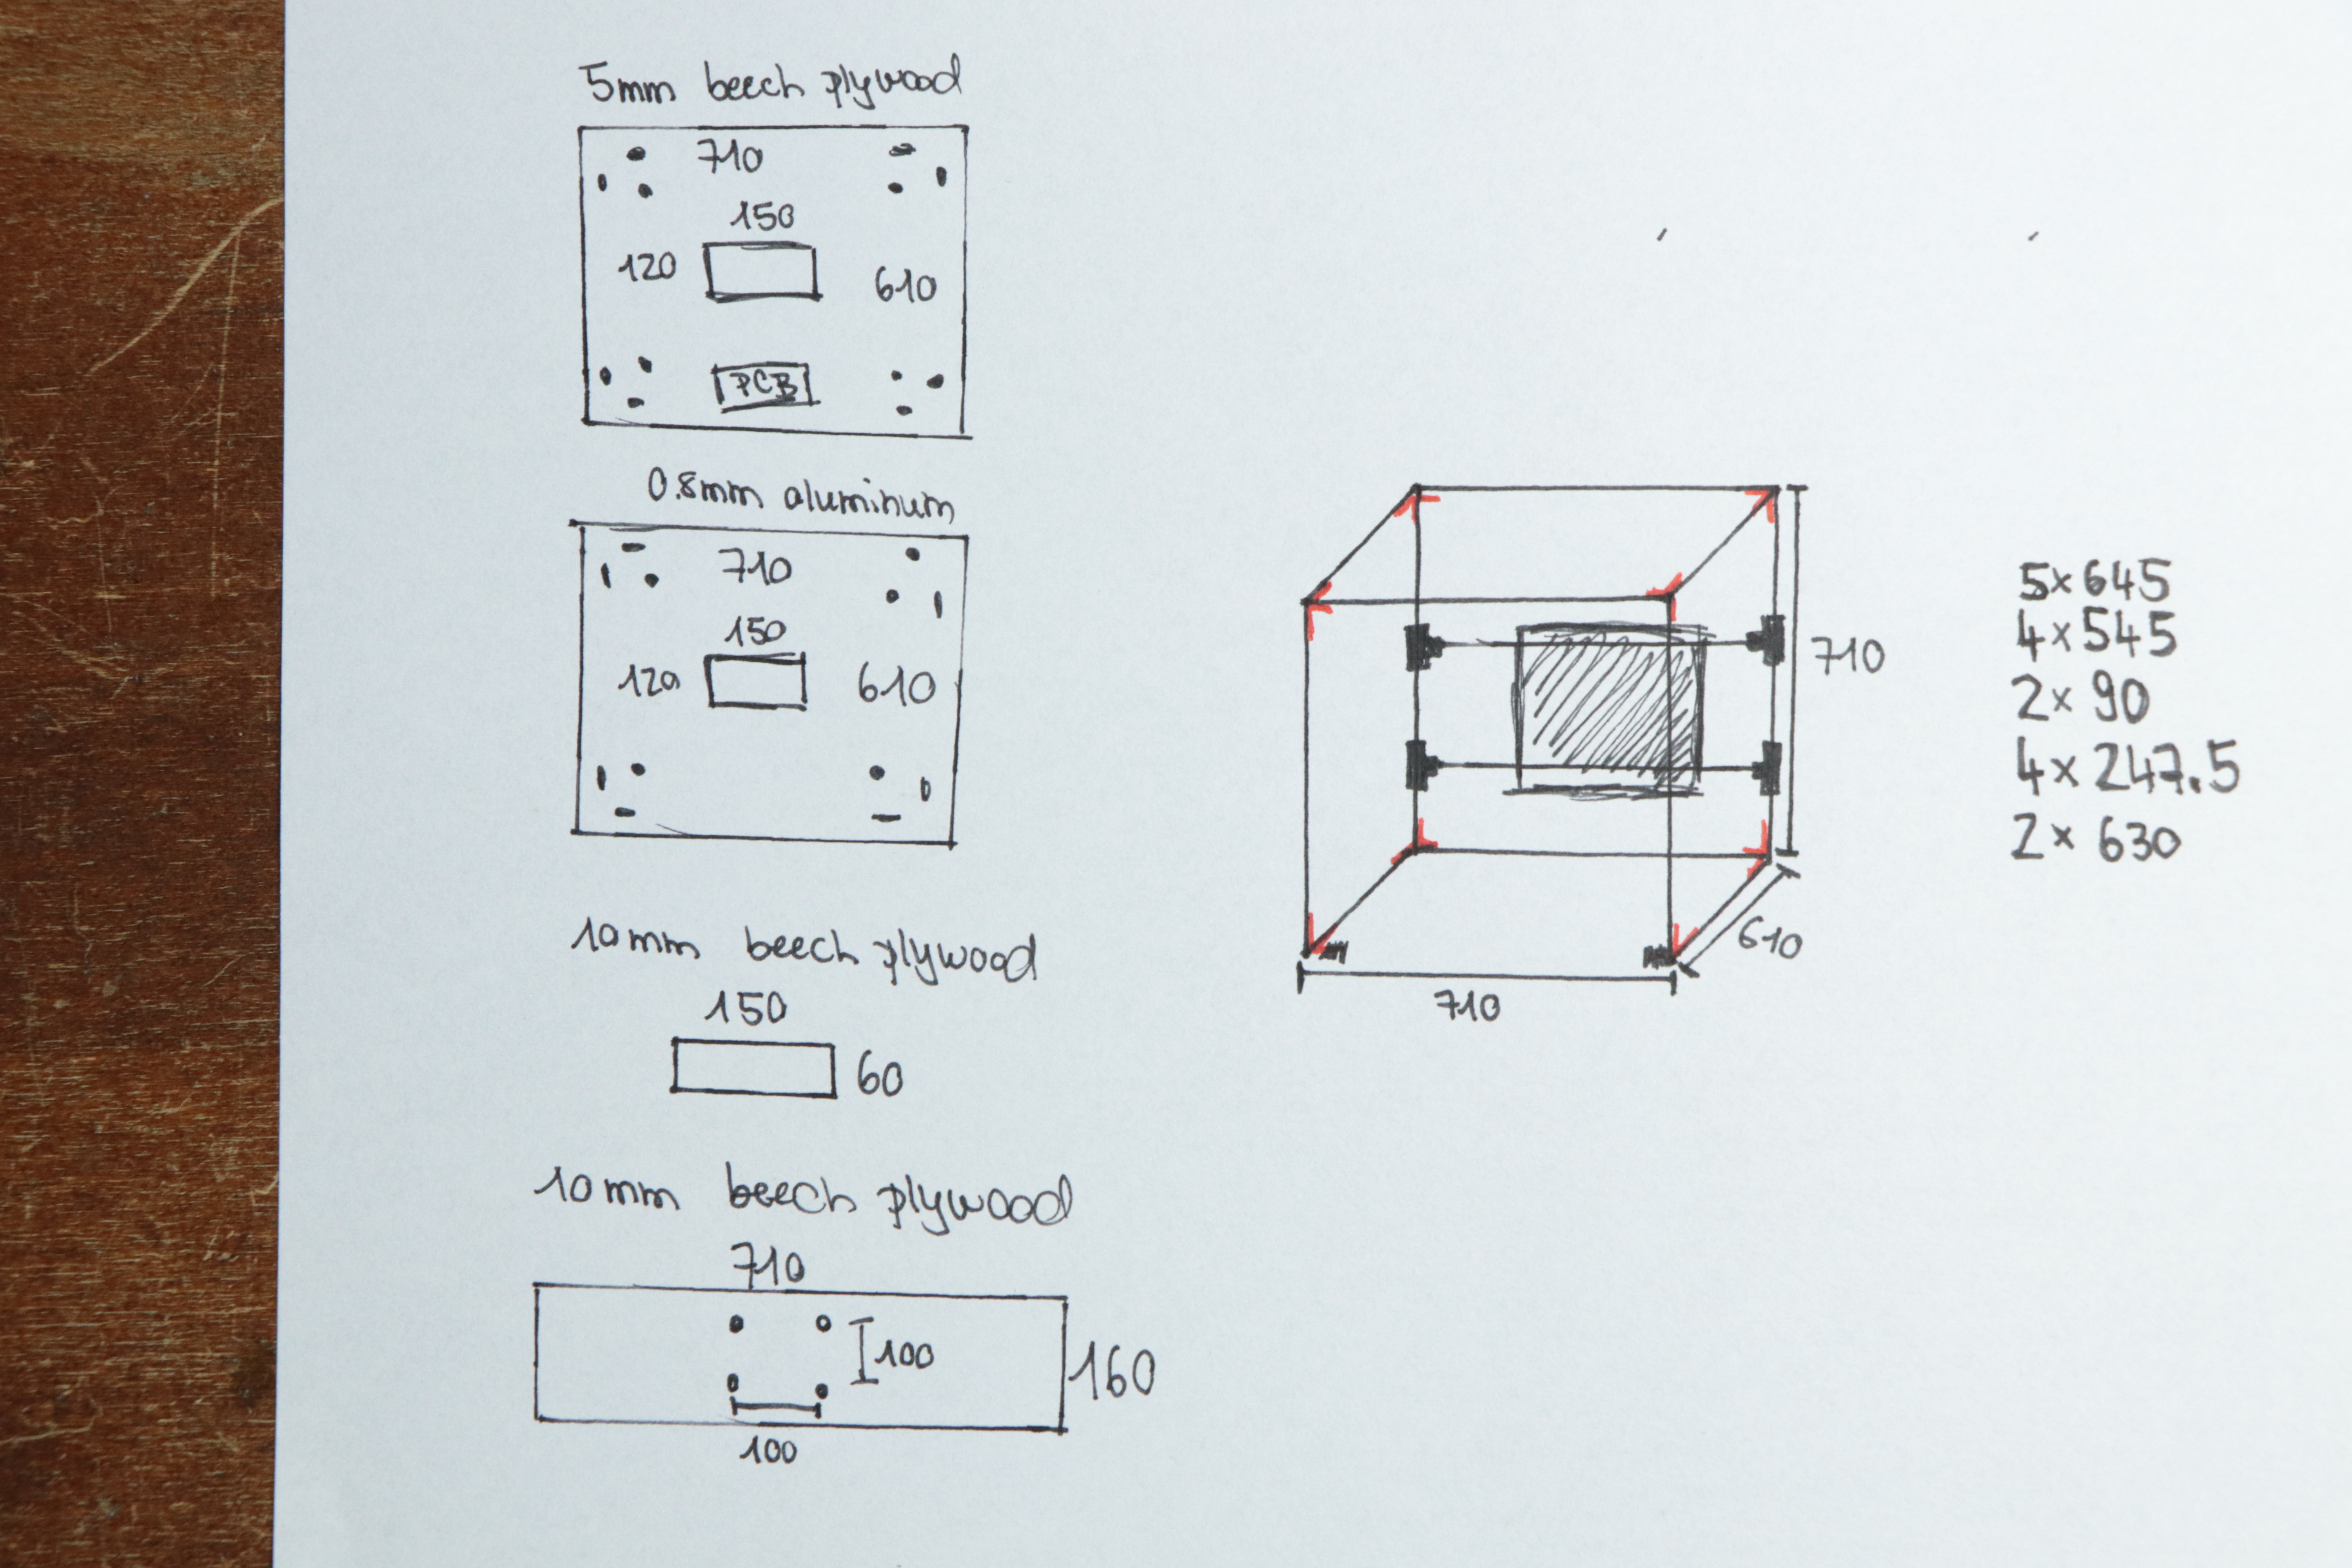 5mm beech plywood
710
150
120
610
PCB
0.8mm aluminum
710
150
120
610
10mm beech plywood
150
60
10mm beech plywood
710
100
160
100
710
610
710
5x645
4x545
2x 90
4x247.5
2x 630